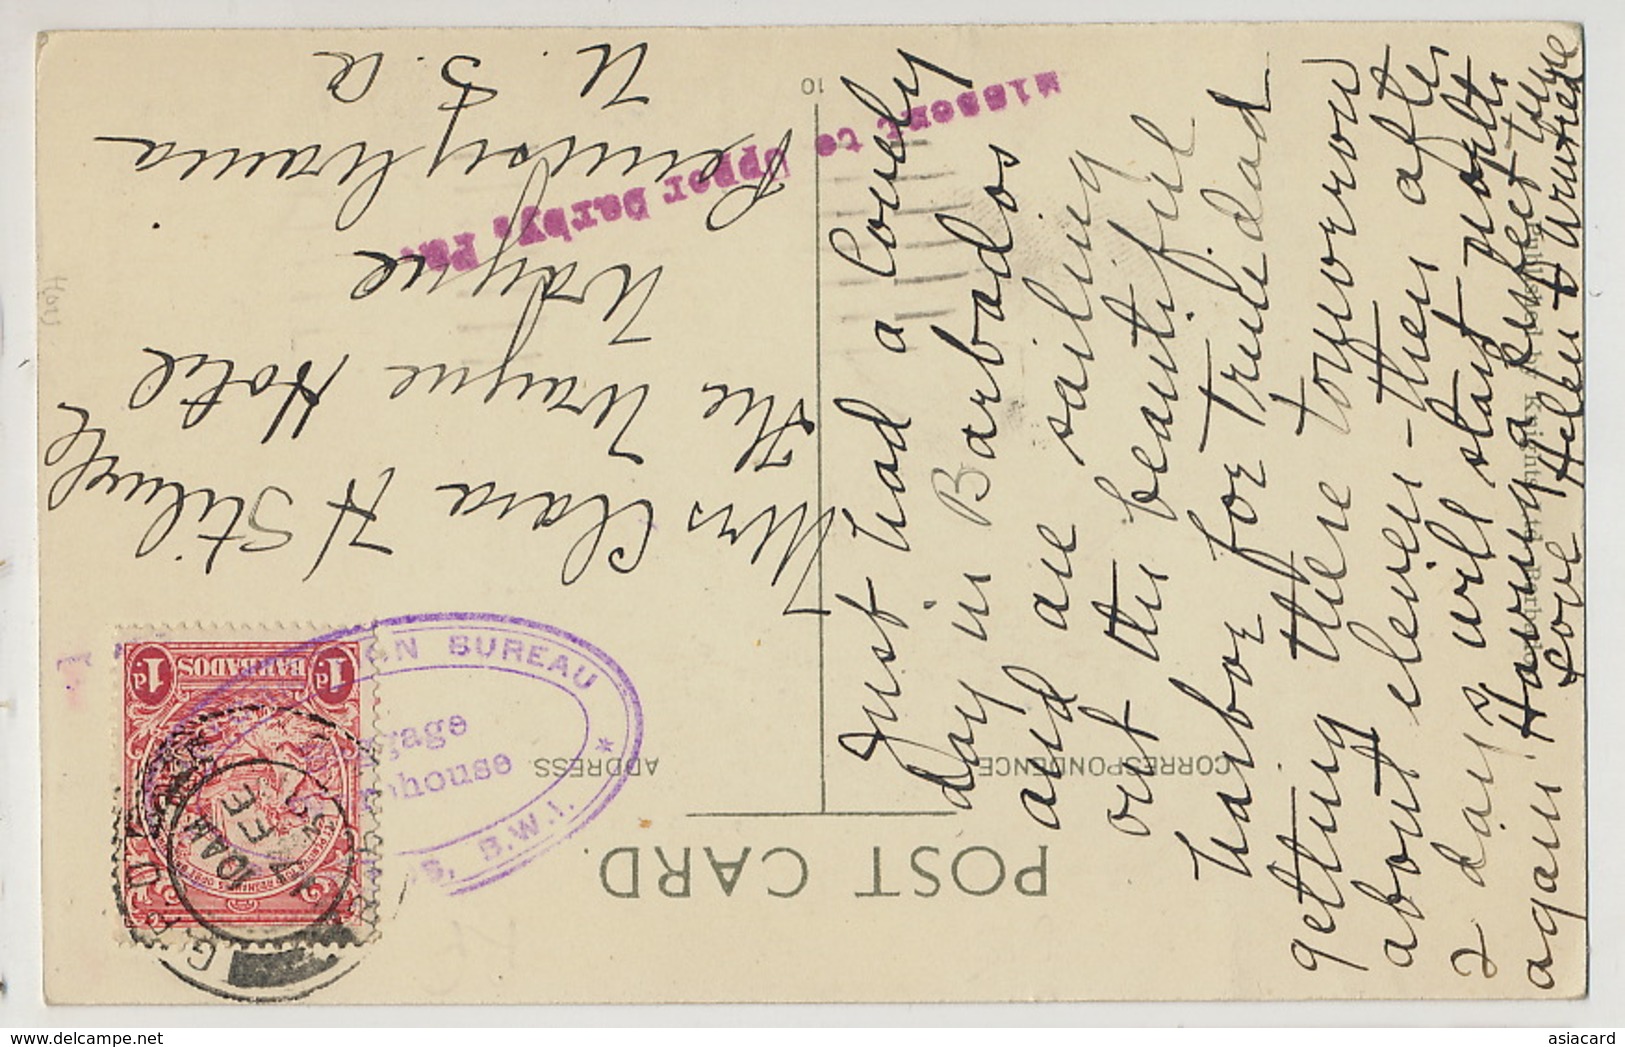 POST CARD.
CORRESPONDENCE
ADDRESS.
10
Just had a lovely
day in Barbados
and are sailing
out the beautiful
harbor for Trinidad
getting there tomorrow
about eleven - then after
2 days will start north
again. Having a perfect time
Love Helen & Winifred
Mrs Clara H Stilwell
The Wayne Hotel
Wayne
Pennsylvania
U. S. A
Missent to Upper Darby, Pa.
BARBADOS
1D. 1D.
BUREAU
B.W.I.
G.P.O.
10 AM
FE
Published by Knights
asiacard